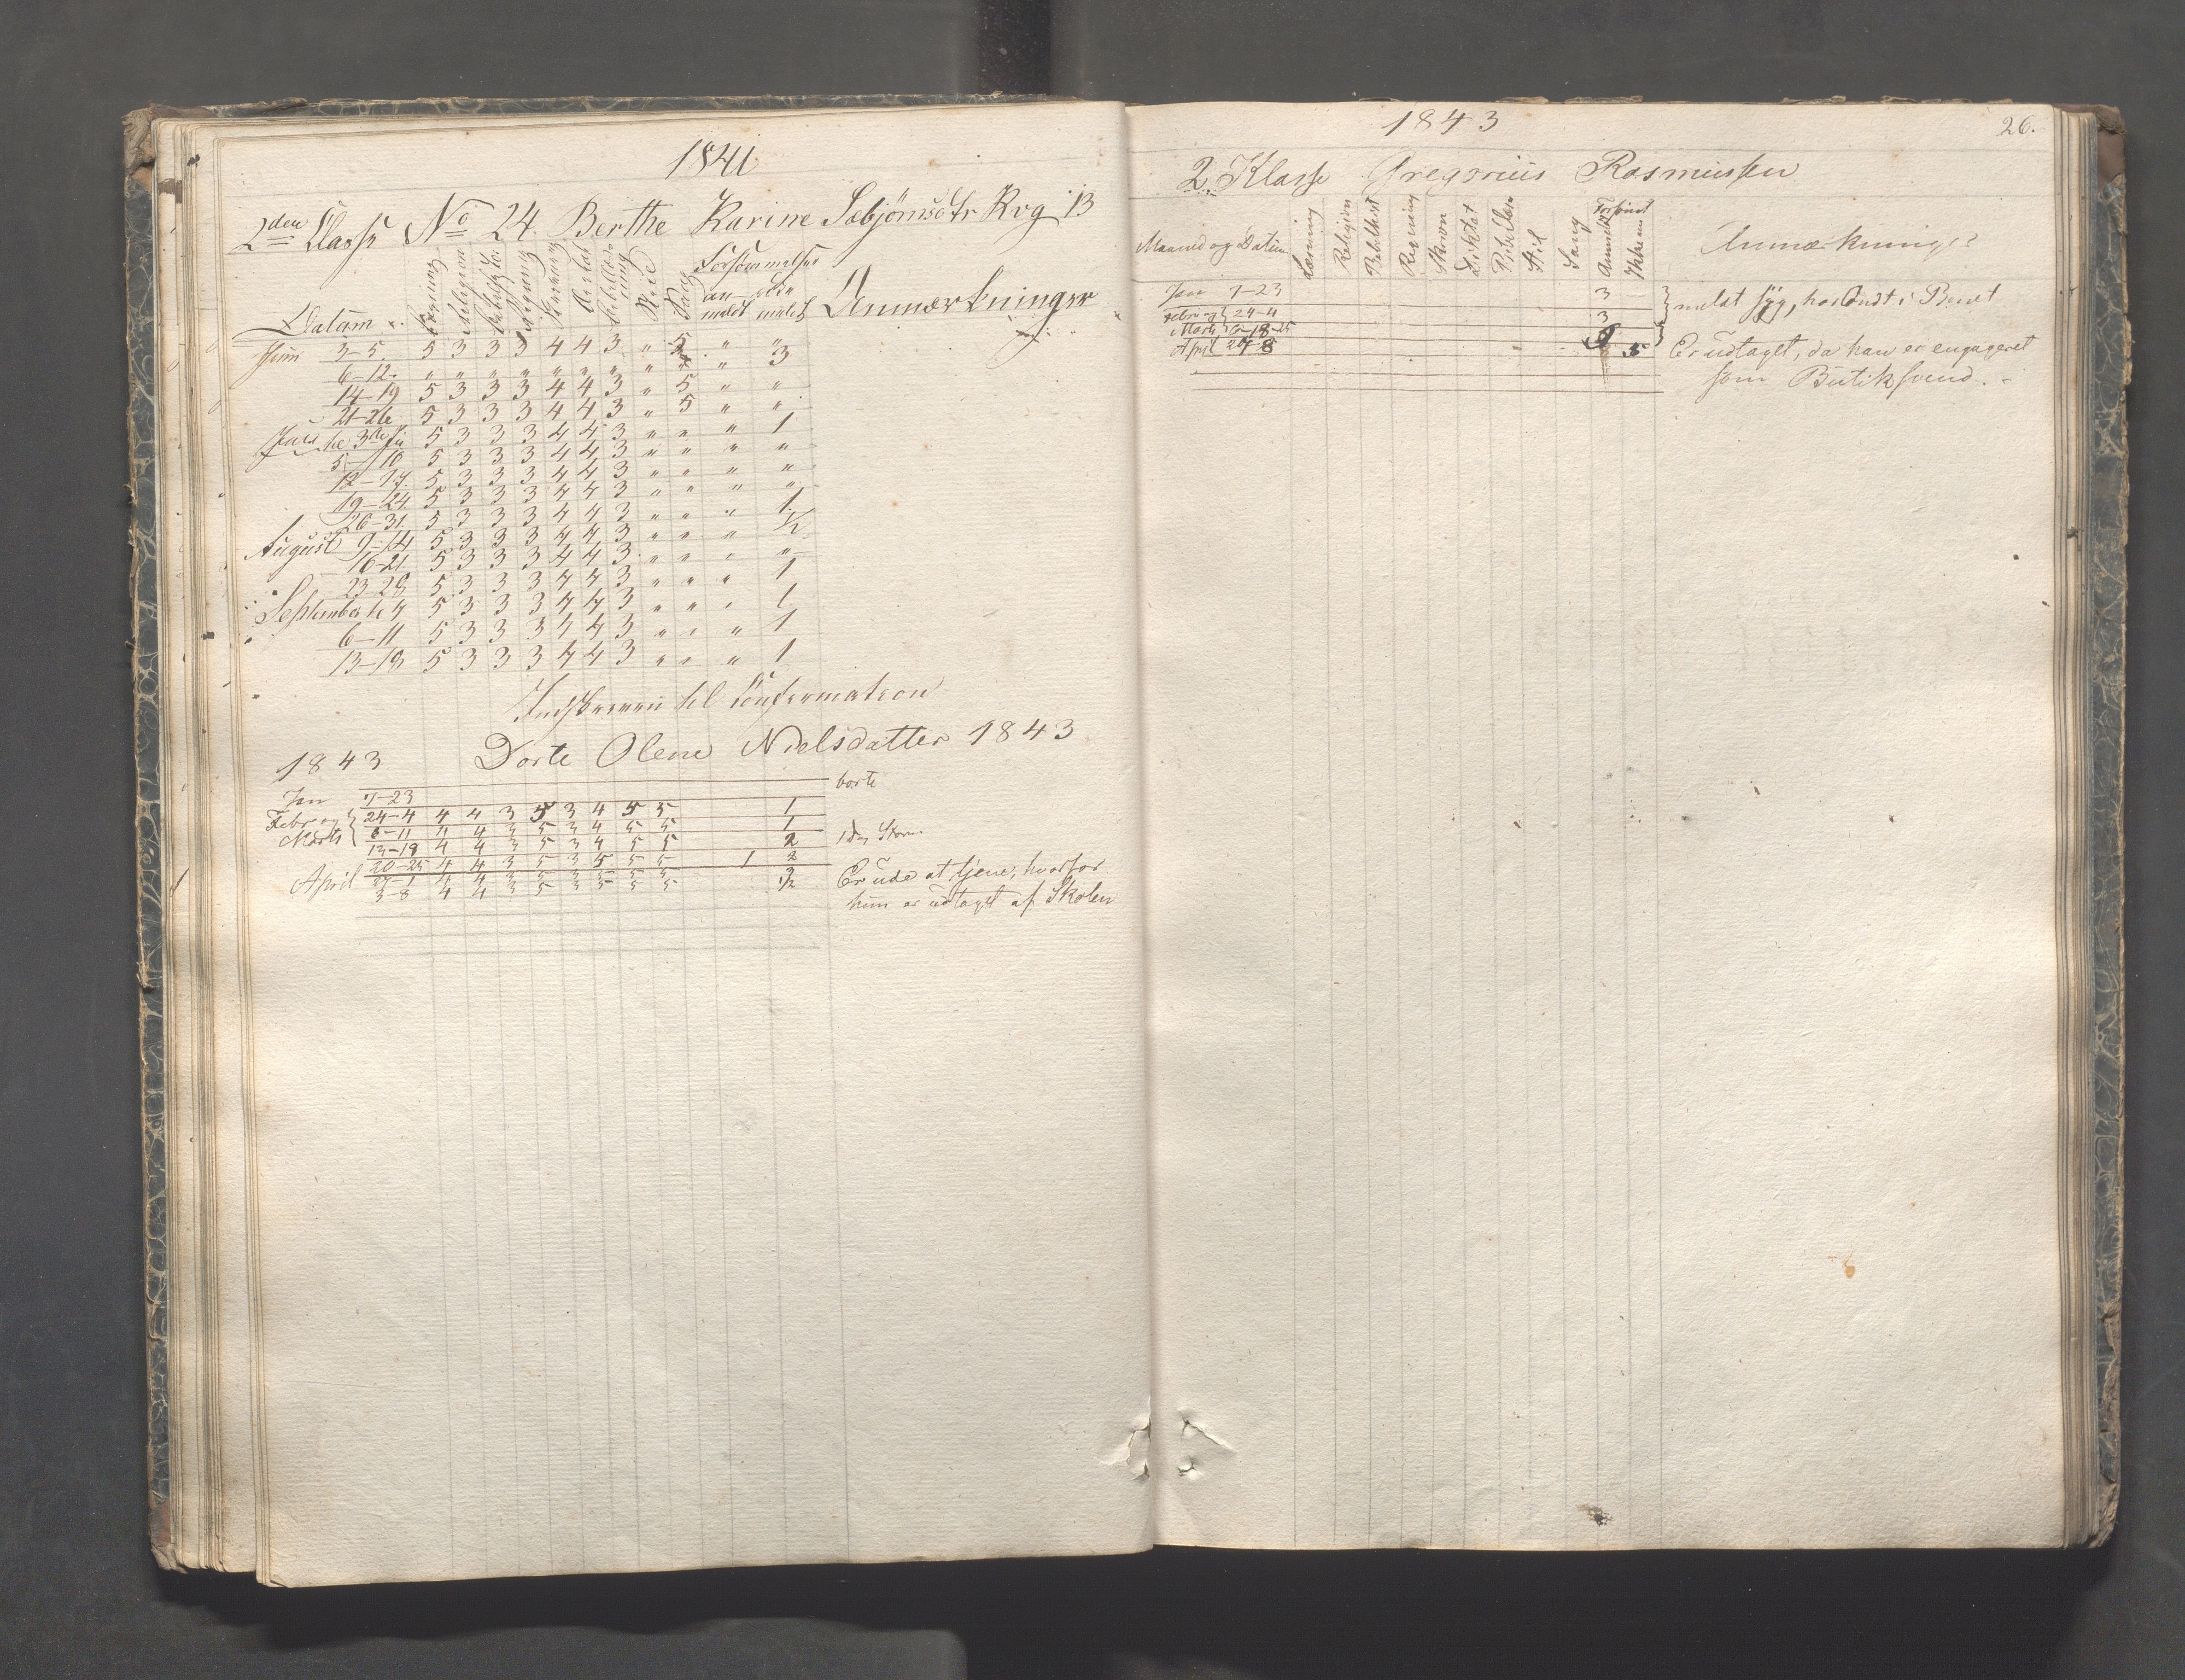 1841
2den Classe No 24. Berthe Karine Sæbjörnsdtr Kvg 13
Datum Læsning Religion Bibelhisto. Regning Skrivning Diktat Bibellæsning Stiil Sang Forsömmelser anmeldt ikke meldt Anmærkninger
Juni 3-5. 5 3 3 3 4 4 3 " 5 " "
6-12. " " " " " " " " " " 3
14-19 5 3 3 3 4 4 3 " 5 " "
21-26 5 3 3 3 4 4 3 " 5 " "
Juli 5 3 3 3 4 4 3 " " " 1
5-10 5 3 3 3 4 4 3 " " " "
12-17. 5 3 3 3 4 4 3 " " " "
19-24 5 3 3 3 4 4 3 " " " "
26-31. 5 3 3 3 4 4 3 " " " 1
August 9-14 5 3 3 3 4 4 3 " " " 1/2
16-21 5 3 3 3 4 4 3 " " " "
23-28 5 3 3 3 4 4 3 " " " 1
September 5 3 3 3 4 4 3 " " " 1
6-11 5 3 3 3 4 4 3 " " " 1
13-18 5 3 3 3 4 4 3 " " " 1
Indskreven til Confermation
1843 Dorte Olene Nielsdatter 1843
Jan 7-23 borte
Febr og 24-4 4 4 3 5 3 4 5 5 1
Marts 6-11 4 4 3 5 3 4 5 5 1
13-18 4 4 3 5 3 4 5 5 2
20-25 4 4 3 5 3 5 5 5 1 2
27-1 4 4 3 5 3 5 5 5 3
April 3-8 4 4 3 5 3 5 5 5 1/2 Er ude at tjene, hvorfor
hun er udtaget af Skolen
1843
26.
2. Klasse Gregorius Rasmussen
Maaned og Datum Læsning Religion Bibelhist Regning Skrivn Diktat Bibellæsn Stil Sang Forsömt Anmeldt Ikke anm Anmærkninger
Jan 7-23 3 meldt syg, har Ondt i Benet
Febr og 24-4 3
Marts 6-18-25
April 27-8 5 Er udtaget, da han er engageret
som Butiksvend.